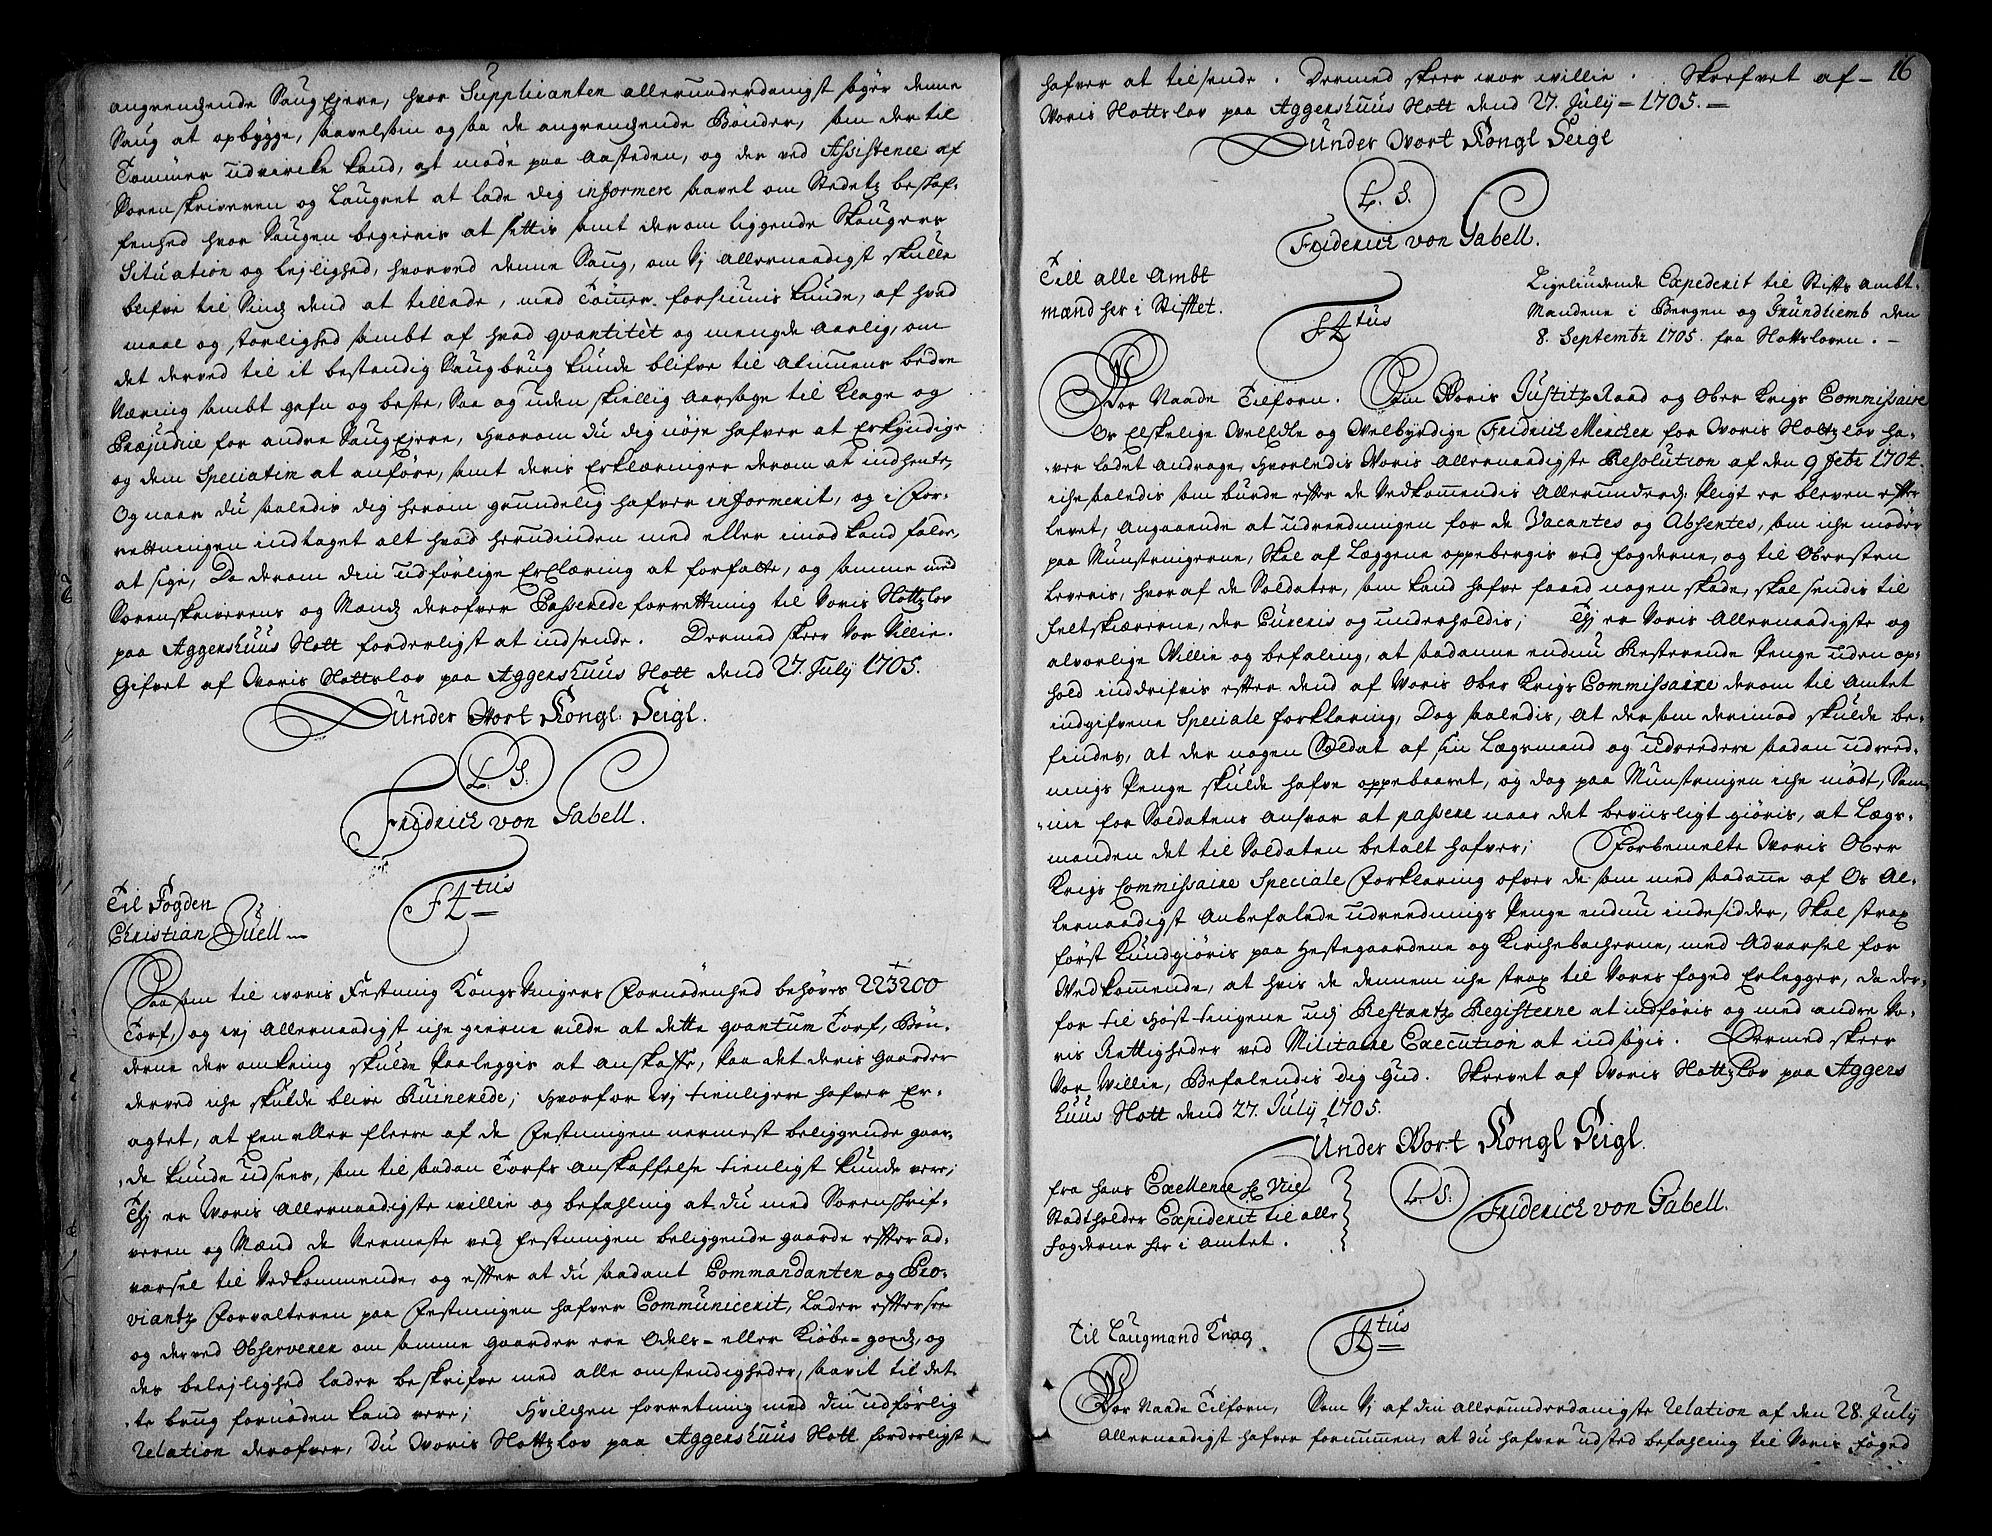 angrendsende Saug Ejere, hvor Supplicanten allerunderdanigst søger denne
Saug at opbygge, saavelsom ogsaa de angrendsende Bønder, som der til
Tømmer udvircke kand, at møde paa Aasteden, og der ved Assistence af
Sorenskriveren og Laugret at lade dig informere saavel om Stedetz beskaf-
fenhed hvor Saugen begieris at settis samt der om liggende Skaugers
Situation og Lejlighed, hvorved denne Saug, om Vj Allernaadigst skulle
blifve til Sindz dend at tillade, med Tømer forsiunis kunde, af hvad
maal og storlighed sambt af hvad qvantitet og mengde Aarlig, om
det derved til it bestendig Saugbrug kunde blifve til Almuens bedre
Næring sambt gafn og beste, Saa og uden skiellig Aarsage til Klage og
Præjudice for andre Saug Ejere, Hvorom du dig nøje hafver at Erkyndige
og dem Speciatim at anføre, samt deris Erklæringer derom at indhente,
Og naar du saaledis dig herom grundelig hafver informerit, og i For-
rettningen indtaget alt hvad herudinden med eller imod kand falde,
at sige, Da derom din udførlige Erclæring at forfatte, og samme med
Sorenskriverens og Mændz derofver Passerede forrettning til Voris Slottzlov
paa Aggershuus Slott forderligst at indsende. Dermed skeer Vor Villie.
Gifvet af Woris Slottslov paa Aggershuus Slott dend 27. July 1705.
Under Wort Kongl. Seigl.
L. S.
Fridrich von Gabell.
F4tus
Til Fogden
Christian Juell
Saasom til woris Festning Kongs Vingers Fornødenhed behøves 223200
Torf, og wj Allernaadigst iche gierne vilde at dette qvantum Torf, Bøn-
derne der omkring skulde Paaleggis at Anskaffe, saa det deris Gaarder
derved iche skulde blive Ruinerede; Hvorfor wj tienligere hafver Er-
agtet, at Een eller fleere af de Festningen nermest beliggende gaar-
de kunde udsees, som til saadan Torfs Anskaffelse tienligst kunde vere;
Thj er Woris Allernaadigste willie og befahling at du med Sorenskrif-
veren og Mænd de Nermeste ved Festningen beliggende gaarde efter ad-
varsel til Vedkommende, og efter at du saadant Commandanten og Pro-
viantz Forvalteren paa Festningen hafver Communicerit, Lader eftersee
og derved Observerer om samme gaarder ere Odels- eller Kiøbe-godz, og
des belejlighed lader beskrifve med alle omstendigheder, saavit til det-
te brug fornøden kand vere; Hvilchen forretning med din udførlig
Relation derofver, Du Woris Slottzlov paa Aggershuus Slott forderligst
16
hafver at tilsende. Dermed skeer wor willie. Skrefvet af
Woris Slottslov paa Aggershuus Slott dend 27. July 1705.
Under Wort Kongl Seigl
L. S.
Friderich von Gabell.
Till alle Ambt
mænd her i Stiftet.
F4tus
Ligeliudende Expederit til Stiffts Ambt-
Mandene i Bergen og Trundhiemb den
8. Septembr 1705. fra Slottsloven.
Vor Naade Tilforn. Som Woris Justitz Raad og Ober Krigs Commissaire
Os Elskelige Velædle og Welbyrdige Fridrich Mencken for Woris Slottzlov ha-
ver ladet Andrage, Hvorledis Woris Allernaadigste Resolution af den 9 febr 1704.
iche saaledis som burde efter de Vedkommendis Allerunderd: Pligt er bleven efter
levet, Angaaende at udreedningen for de Vacantes og Absentes, som iche møder
paa Munstringerne, Skal af Læggene oppebergis ved Fogderne, og til Obersten
Leveris, hvor af de Soldater, som kand hafve faaed nogen skade, skal sendis til
Feltskiærerne, der Cureris og underholdis; Thj er Woris Allernaadigste og
alvorlige Villie og befaling, at saadanne endnu Resterende Penge uden op-
hold inddrifvis efter dend af Woris Ober Krigs Commissaire derom til Amtet
indgifvene Speciale forklaring, Dog saaledis, At der som derimod skulde be-
findes, at der nogen Soldat af sin Lægsmand og Udreedere saadan udreed-
nings Penge skulde hafve oppebaaret, og dog paa Munstringen iche mødt, Sam-
me for Soldatens Ansvar at passere naar det beviisligt giøris, at Lægs-
manden det til Soldaten betalt hafver; Forbemelte Woris Ober
Krigs Commissaire Speciale Forklaring ofver de som med saadanne af Os Al-
lernaadigst Anbefalede udreednings Penge endnu indesidder, Skal strax
først Kundgiøris paa Hestegaardene og Kirchebacherne, med Advarsel for
Vedkommende, at hvis de dennem iche strax til Vores foged Erlegger, da der-
for til Høst Tingene udj Restantz Registerne at indføris og med andre Vo-
ris Rettigheder ved Militaire Execution at indsøgis. Dermed skeer
Vor Willie, Befalendis dig Gud. Skrevet af Woris Slottzlov paa Aggers
huus Slott dend 27. July 1705.
Under Wort Kongl Seigl.
L. S.
Friderich von Gabell.
fra hans Excellence Hr Vice
Stadtholder Expiderit til alle
Fogderne her i Amtet.
F4tus
Til Laugmand Knag
Vor Naade Tilforn, Som Vj af din allerunderdanigste Relation af den 28. July
Allernaadigst hafver fornummen, at du hafver udsted befahling til Voris foged